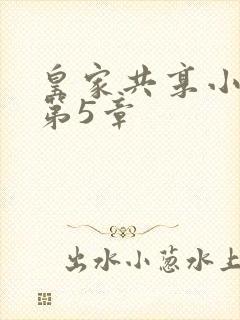 皇家共享小
第5章
出水小葱水上